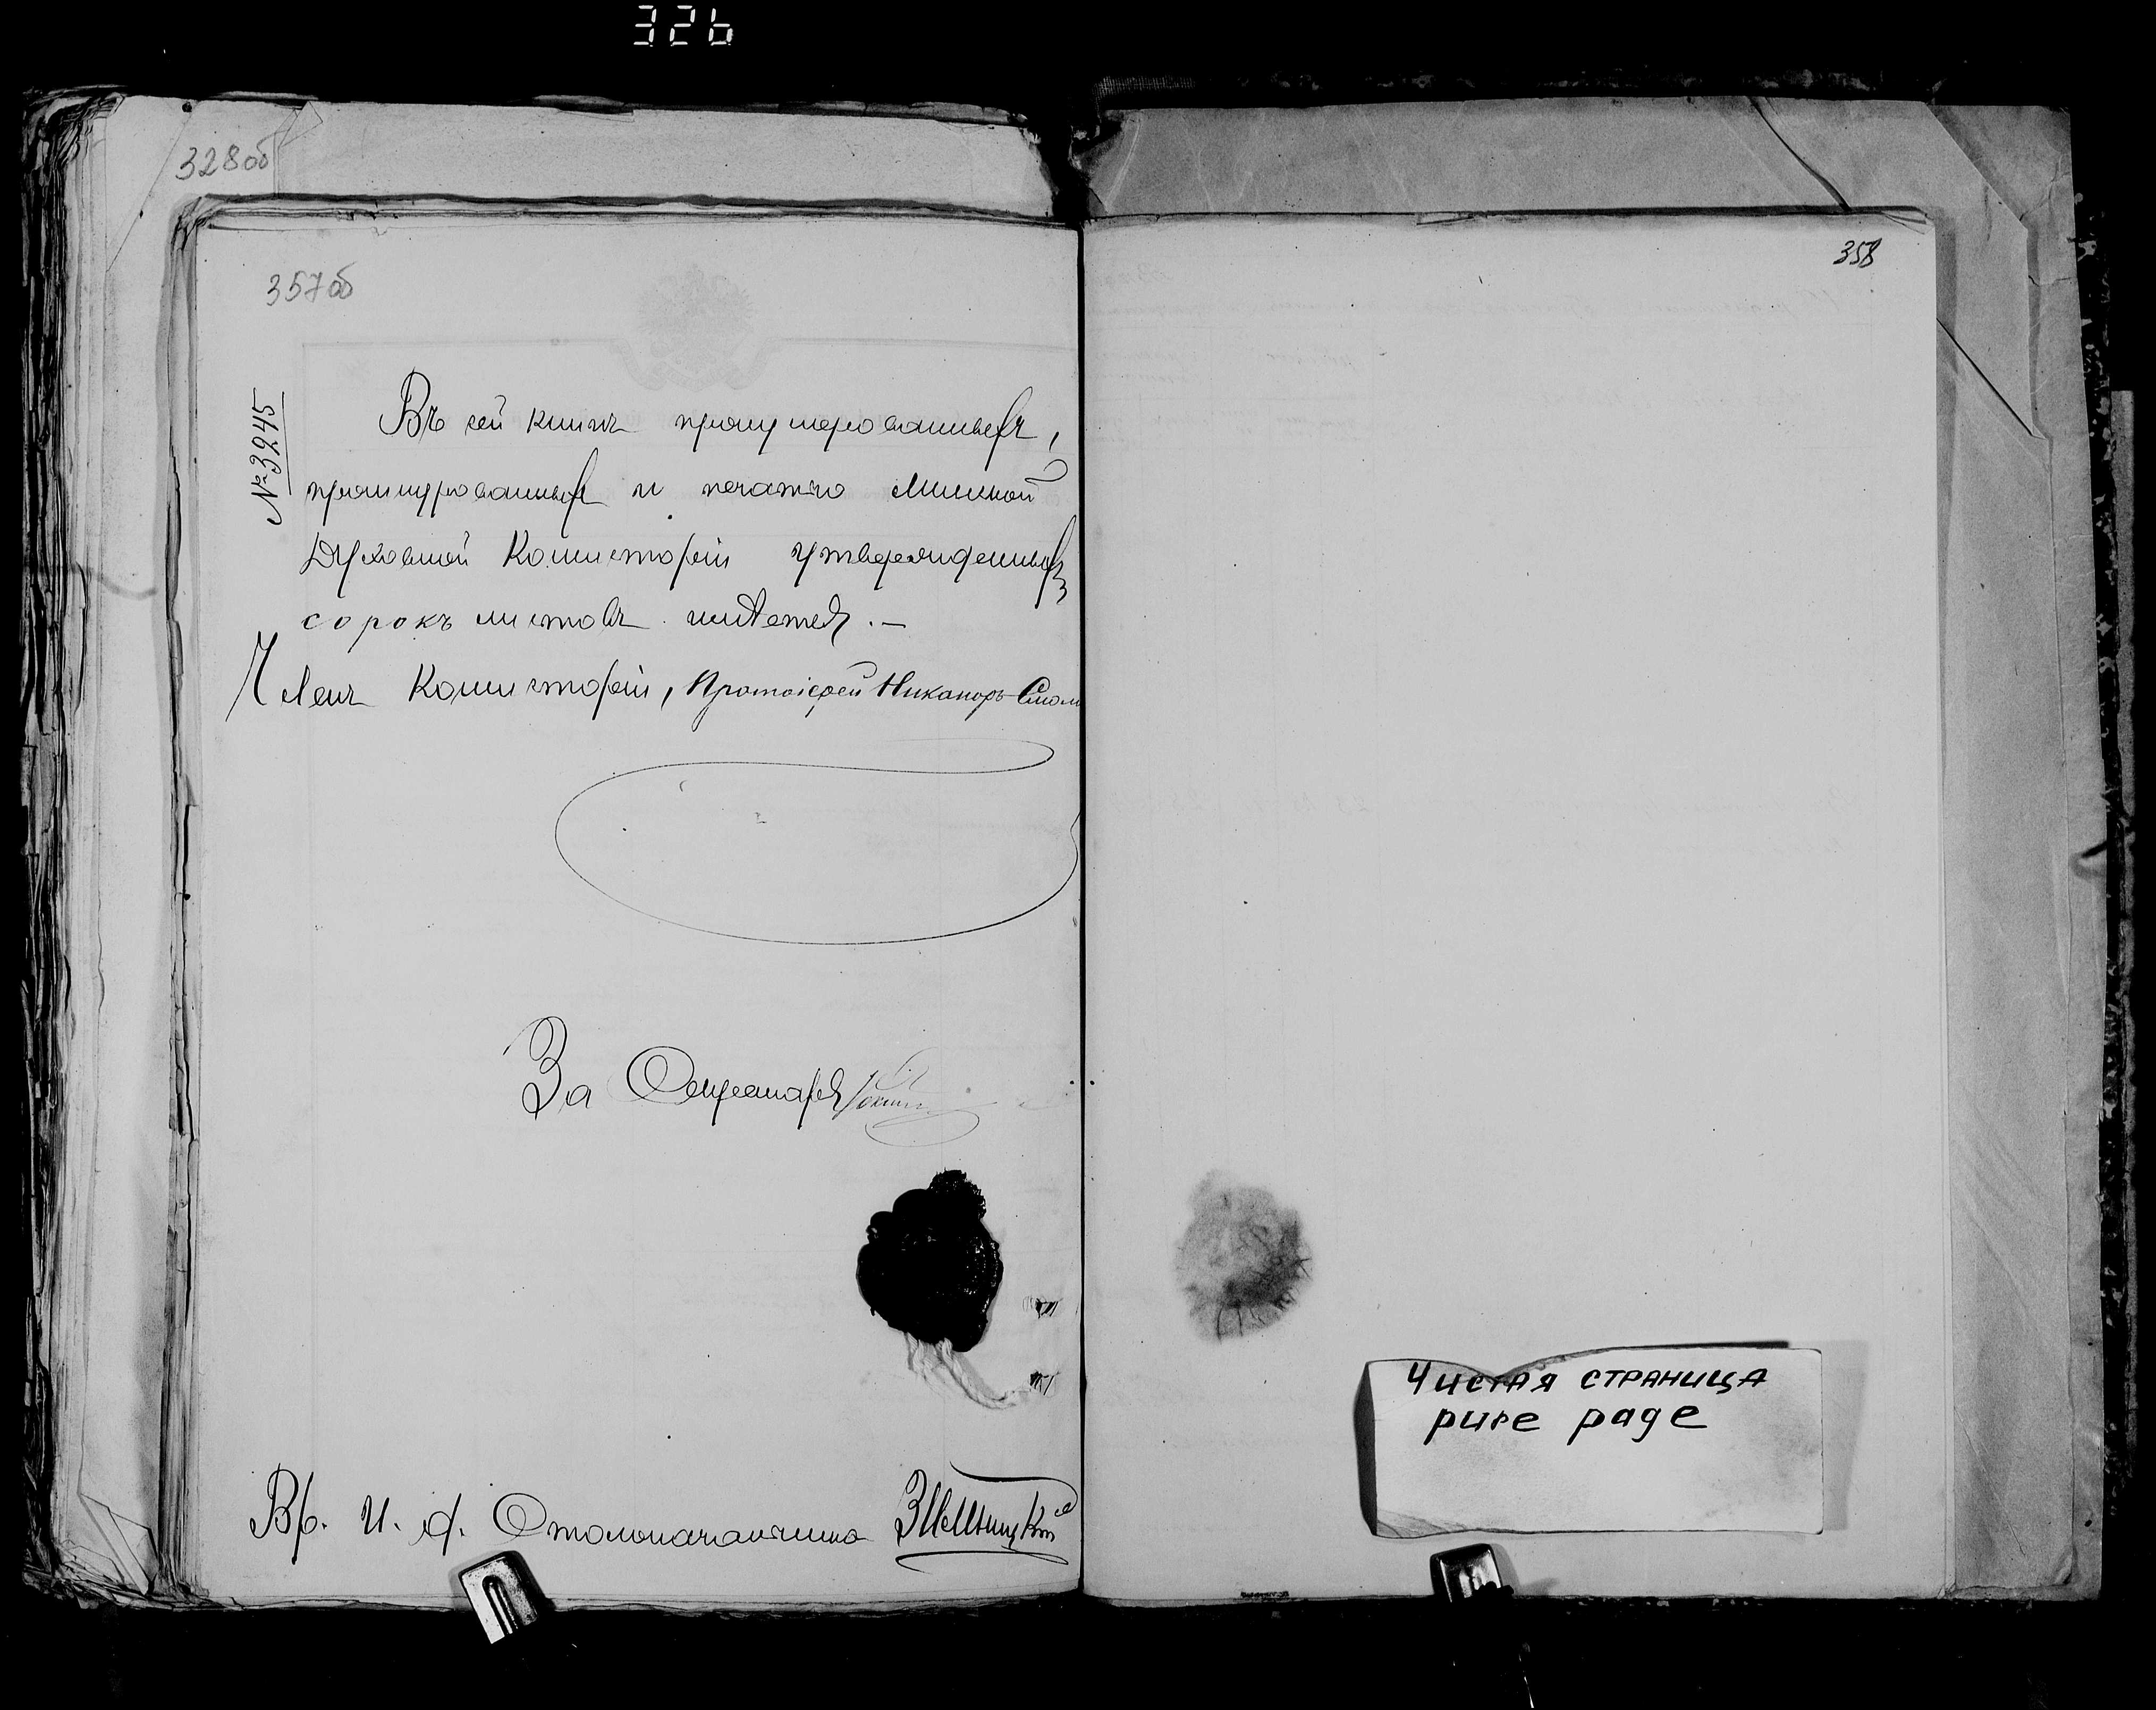 326
328об
357об
№ 3245
Въ сей книгѣ пронумерованныхъ,
прошнурованныхъ и печатью Минской
Духовной Консисторіи утвержденныхъ
сорокъ листовъ имѣется. —
Членъ Консисторіи, Протоіерей Никаноръ Смол
За Секретаря
Вр. И. д. Столоначальника
358
Чистая страница
pure page